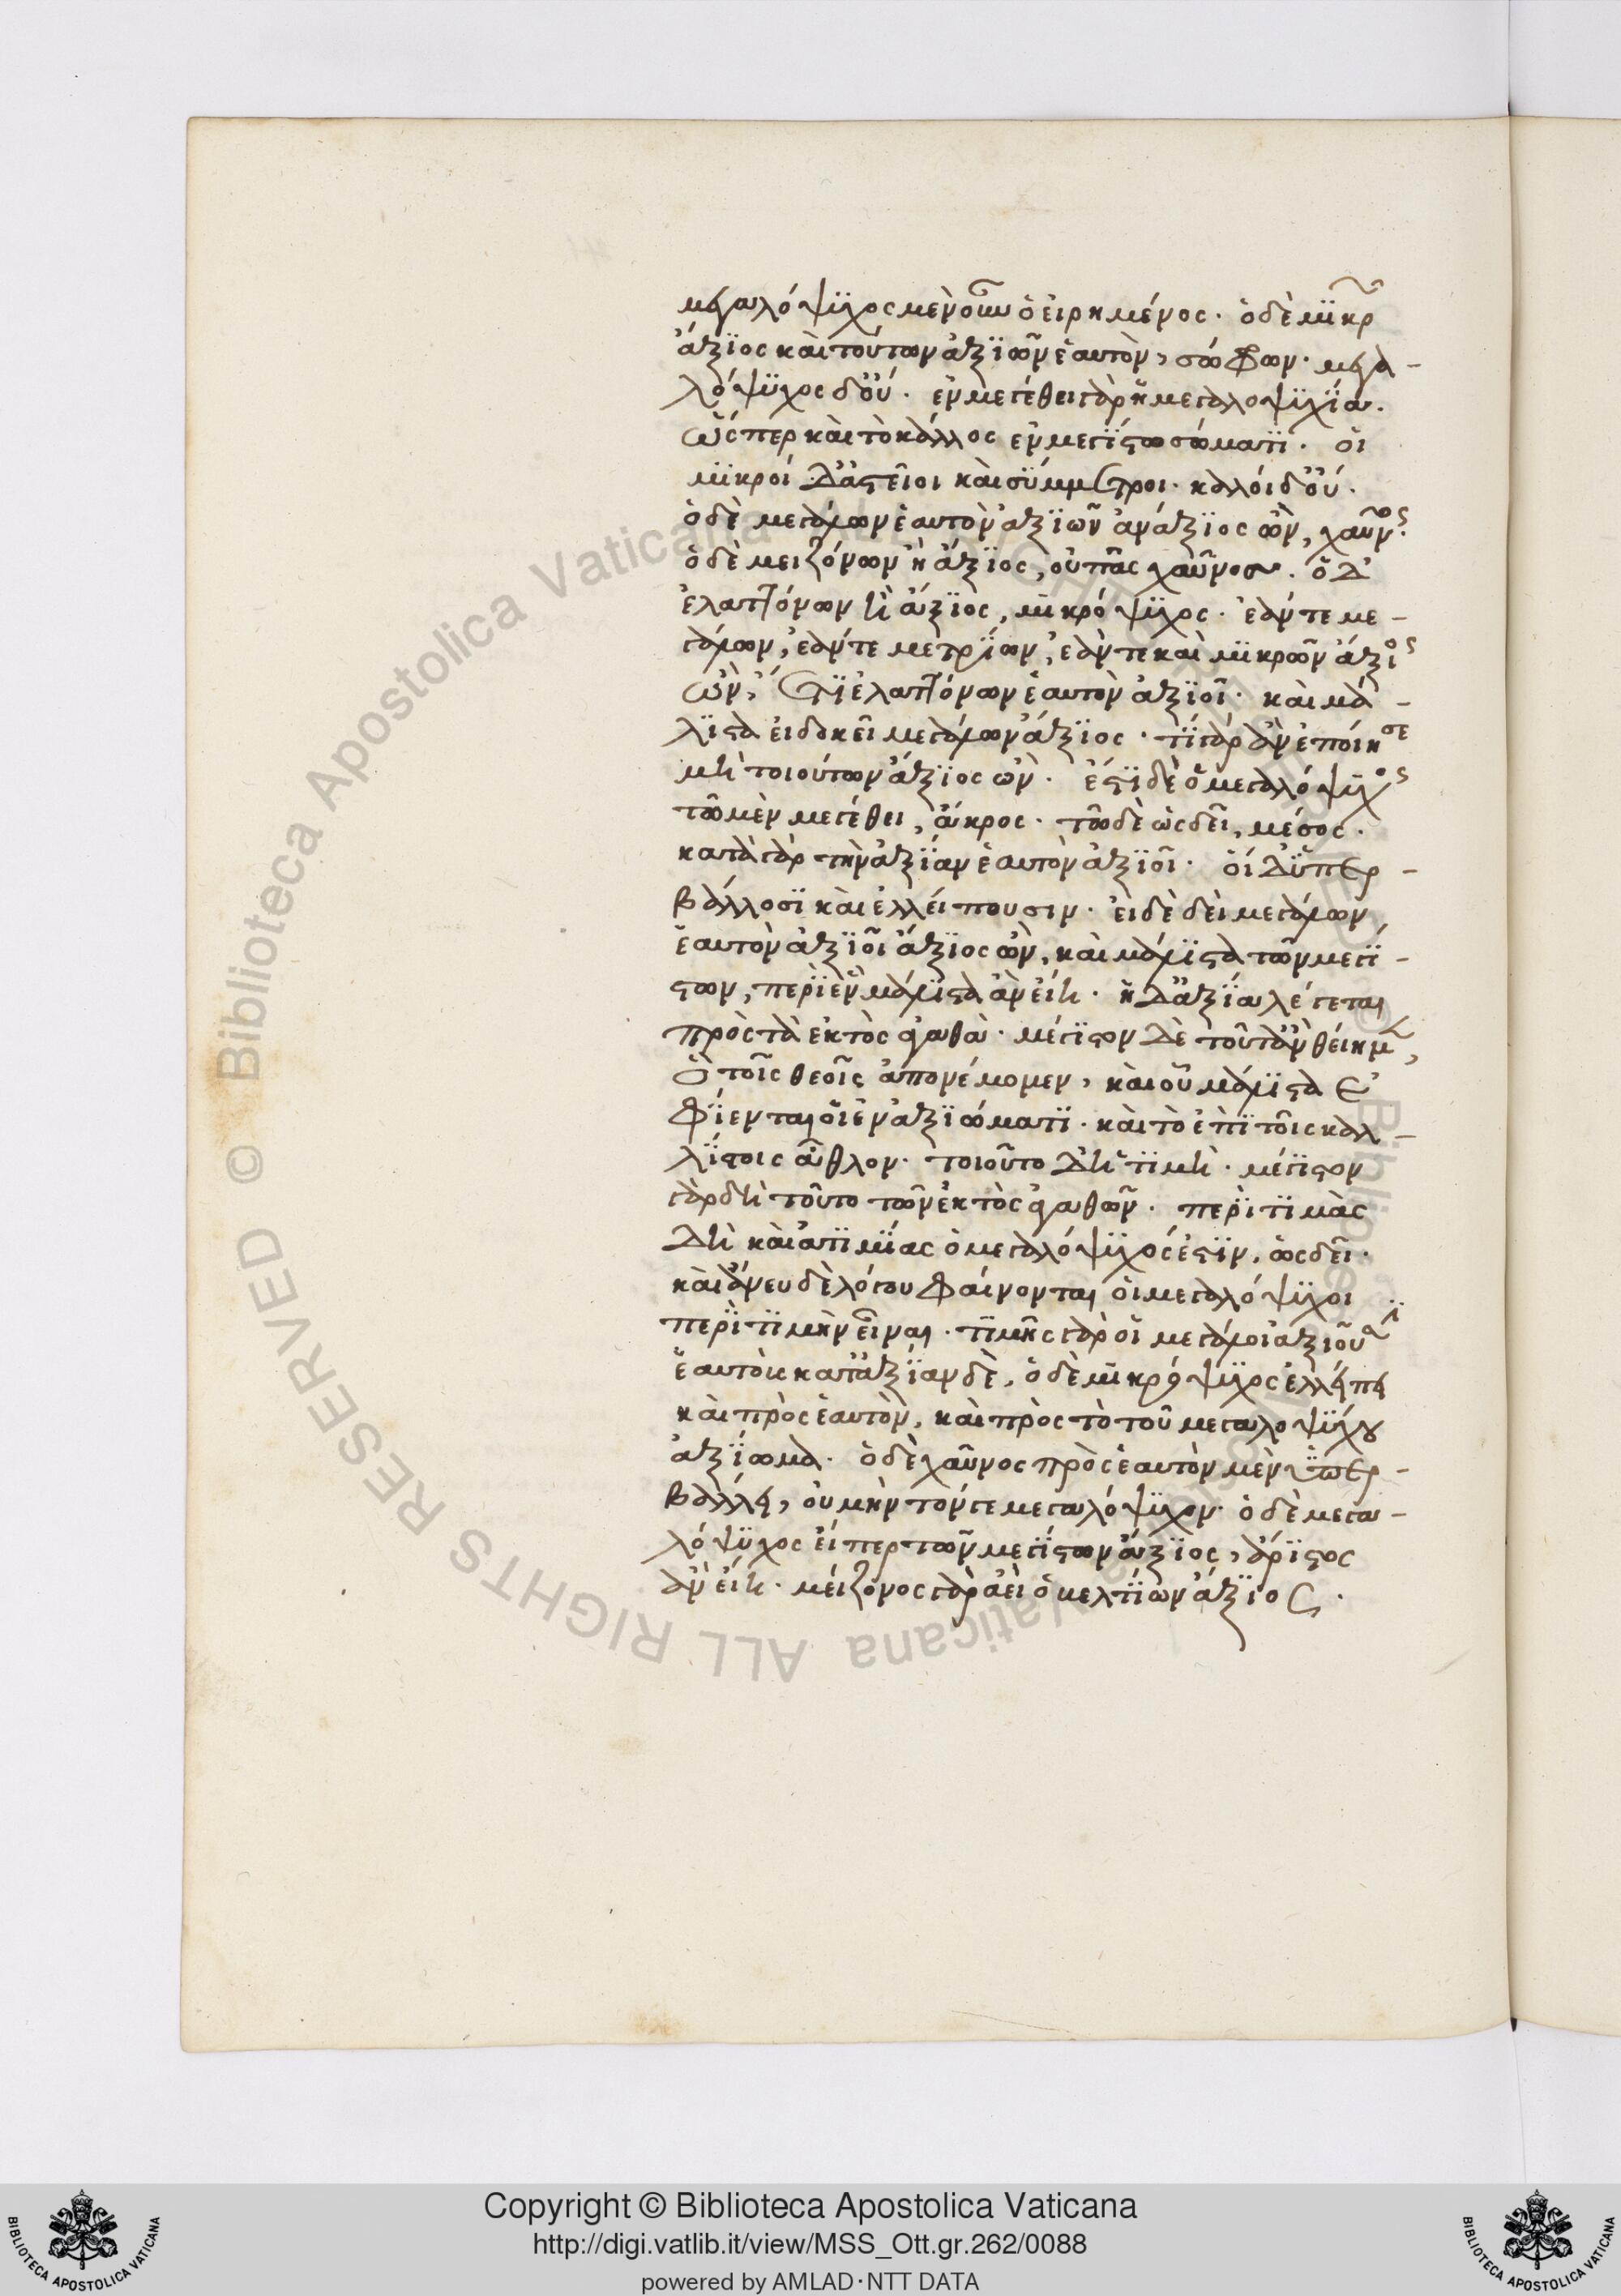 μεγαλόψυχος μὲν οὖν ὁ εἰρημένος· ὁ δὲ μικρῶν
ἄξιος καὶ τούτων ἀξιῶν ἑαυτὸν, σώφρων· μεγα-
λόψυχος δ' οὔ· ἐν μεγέθει γὰρ ἡ μεγαλοψυχία·
ὥσπερ καὶ τὸ κάλλος ἐν μεγίστω σώματι· οἱ
μικροὶ δ' ἀστεῖοι καὶ σύμμετροι· καλοὶ δ' οὔ·
ὁ δὲ μεγάλων ἑαυτὸν ἀξιῶν ἀνάξιος ὢν, χαῦνος·
ὁ δὲ μειζόνων ἢ ἄξιος, οὐ πᾶς χαῦνος. ὁ δ'
ἐλαττόνων ἢ ἄξιος, μικρόψυχος· ἐάν τε με-
γάλων, ἐάν τε μετρίων, ἐάν τε καὶ μικρῶν ἄξιος
ὢν, ἔτι ἐλαττόνων ἑαυτὸν ἀξιοῖ· καὶ μά-
λιστα εἰ δοκεῖ μεγάλων ἄξιος· τί γὰρ ἂν ἐποίησε
μὴ τοιούτων ἄξιος ὢν· ἔστι δὲ ὁ μεγαλόψυχος
τῶ μὲν μεγέθει, ἄκρος· τῶ δὲ ὡς δεῖ, μέσος·
κατὰ γὰρ τὴν ἀξίαν ἑαυτὸν ἀξιοῖ· οἱ δ' ὑπερ-
βάλλοσι καὶ ἐλλείπουσιν· εἰ δὲ δεῖ μεγάλων
ἑαυτὸν ἀξιοῖ ἄξιος ὢν, καὶ μάλιστα τῶν μεγί-
στων, περὶ ἓν μάλιστα ἂν εἴη· ἡ δ' ἀξία λέγεται
πρὸς τὰ ἐκτὸς ἀγαθά· μέγιστον δὲ τοῦτ' ἂν θείημεν,
ὃ τοῖς θεοῖς ἀπονέμομεν, καὶ οὗ μάλιστα ἐ
φίενται οἱ ἐν ἀξιώματι· καὶ τὸ ἐπὶ τοῖς καλ-
λίστοις ἆθλον· τοιοῦτο δ' ἡ τιμή· μέγιστον
γὰρ δὴ τοῦτο τῶν ἐκτὸς ἀγαθῶν· περὶ τιμὰς
δὴ καὶ ἀτιμίας ὁ μεγαλόψυχός ἐστιν, ὡς δεῖ·
καὶ ἄνευ δὲ λόγου φαίνονται οἱ μεγαλόψυχοι
περὶ τιμὴν εἶναι· τιμῆς γὰρ οἱ μεγάλοι ἀξιοῦσι
ἑαυτοὺς κατ' ἀξίαν δὲ, ὁ δὲ μικρόψυχος ἐλλείπει
καὶ πρὸς ἑαυτὸν, καὶ πρὸς τὸ τοῦ μεγαλοψύχου
ἀξίωμα· ὁ δὲ χαῦνος πρὸς ἑαυτὸν μὲν ὑπερ-
βάλλει, οὐ μὴν τόν γε μεγαλόψυχον· ὁ δὲ μεγα-
λόψυχος εἴπερ τῶν μεγίστων ἄξιος, ἄριστος
ἂν εἴη· μείζονος γὰρ ἀεὶ ὁ βελτίων ἄξιος·
Copyright © Biblioteca Apostolica Vaticana
http://digi.vatlib.it/view/MSS_Ott.gr.262/0088
powered by AMLAD·NTT DATA
BIBLIOTECA APOSTOLICA VATICANA
BIBLIOTECA APOSTOLICA VATICANA